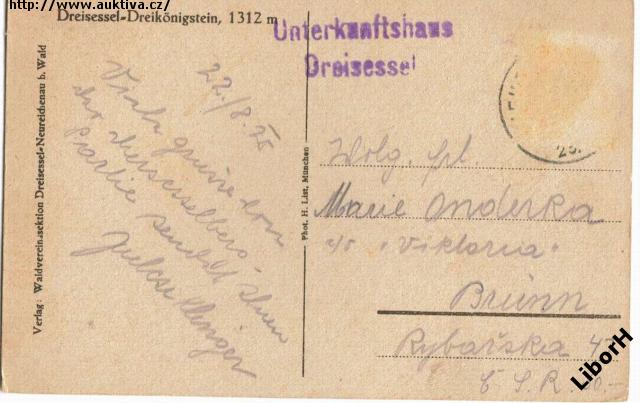 http://www.auktiva.cz/
Dreisessel-Dreikönigstein, 1312 m
Unterkunftshaus
Dreisessel
Verlag: Waldvereinssektion Dreisessel-Neureichenau b. Wald
Phot. H. List, München
22./8.
Viele grüsse von
der Dreisesselberg-
Partie sendet Ihnen
23.
Wolg. frl.
Marie Onderka
c/o "Viktoria"
Brünn
Rybařska 47
Č. S. R.
LiborH